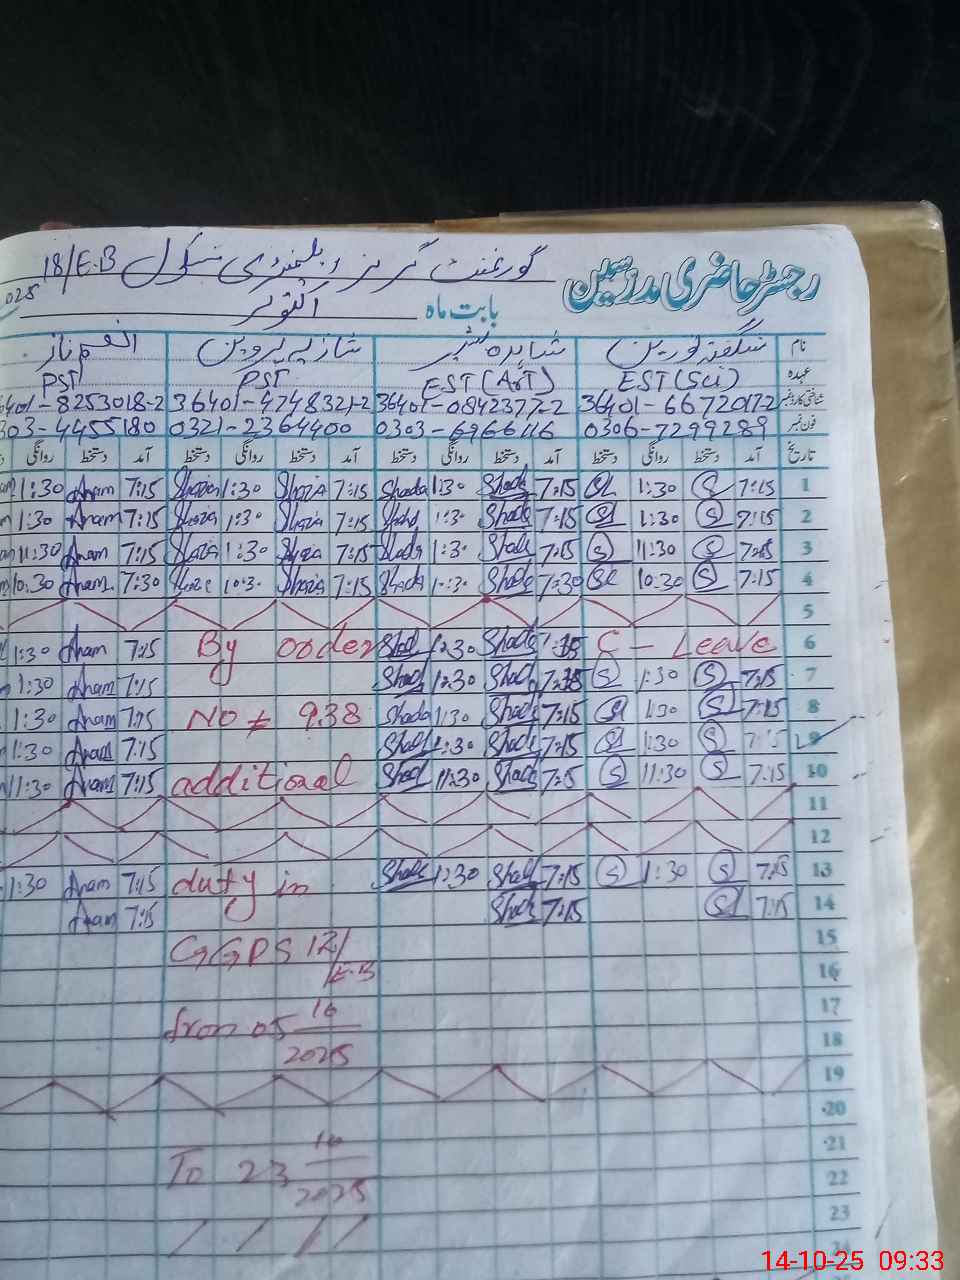 رجسٹر حاضری مدرسین گورنمنٹ گرلز ایلیمنٹری سکول 18/E.B
بابت ماہ اکتوبر
نام شگفتہ نورین شاہدہ شازیہ پروین انعم ناز
عہدہ EST (Sci) EST (ArT) PST PST
شناختی کارڈ نمبر 36401-6672017-2 36401-0842377-2 36401-4748321-2 8253018-2
فون نمبر 0306-7299289 0303-6966116 0321-2364400 0303-4455180
تاریخ آمد دستخط روانگی دستخط آمد دستخط روانگی دستخط آمد دستخط روانگی دستخط آمد دستخط روانگی
1 7:15 S 1:30 Sh 7:15 Shada 1:30 Shada 7:15 Shazia 1:30 Shazia 7:15 Anam 1:30
2 7:15 S 1:30 Sh 7:15 Shada 1:30 Shada 7:15 Shazia 1:30 Shazia 7:15 Anam 1:30
3 7:15 S 11:30 S 7:15 Shada 1:30 Shada 7:15 Shazia 1:30 Shazia 7:15 Anam 11:30
4 7:15 S 10:30 7:30 Shada 10:30 Shada 7:15 Shazia 10:30 7:30 Anam 10:30
5
6 C - Leave Shada 12:30 Shad By order 7:15 Anam 1:30
7 7:15 S 1:30 S Shada 12:30 Shada 7:15 Anam 1:30
8 7:15 S 1:30 7:15 Shada 1:30 Shada No # 938 7:15 Anam 1:30
9 7:15 S 1:30 7:15 Shada 1:30 Shada 7:15 Anam 1:30
10 7:15 S 11:30 S 7:15 Shada 11:30 Shad additional 7:15 Anam 11:30
11
12
13 7:15 S 1:30 S 7:15 Shada 12:30 Shada duty in 7:15 Anam 1:30
14 7:15 7:15 Shada 7:15 Anam
15 GGPS 12/E.B
16
17 from 05 10/2025
18
19
20
21 To 23 10/2025
22
23
24
14-10-25 09:33